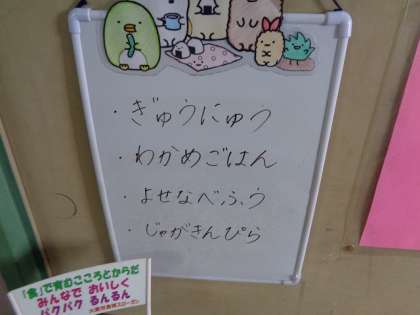 ・ぎゅうにゅう
・わかめごはん
・よせなべふう
・じゃがきんぴら
「食」で育むこころとからだ
みんなで おいしく
パクパク るんるん